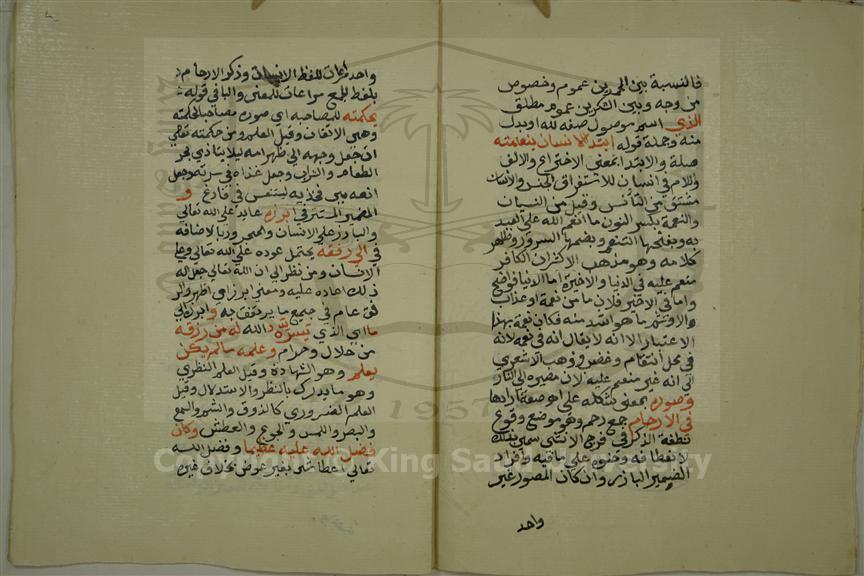 فالنسبة بين الحمدين عموم وخصوص
من وجه وبين الشكرين عموم مطلق
الذي اسم موصول صفه لله او بدل
منه وجملة قوله ابتدا الانسان بنعمته
صلة والابتدا بمعنى الاختراع والالف
واللام في انسان للاستغراق الجنس والانسان
مشتق من التأنس وقيل من النسيان
والنعمة بكسر النون ما انعم الله على العبد
به وبفتحها التنعم وبضمها السرور وظاهر
كلامه وهو مذهب الاكثر ان الكافر
منعم عليه في الدنيا والاخرة اما الدنيا فواضح
واما في الاخرة فلان ما من نعمة او عذاب
الا وثم ما هو اشد منه فكان نعمة بهذا
الاعتبار الا انه لا يقال انه في نعمة لانه
في محل انتقام وغضب وذهب الاشعري
الى انه غير منعم عليه لان مصيره الى النار
وصوره بمعنى شكله على اي صفة ارادها
في الارحام جمع رحم وهو موضع وقوع
نطفة الذكر في فرج الانثى سمي بذلك
لانعطافه وحنوه على ما فيه وافراد
الضمير البارز وان كان المصور غير
واحد
واحد مراعات للفظ الانسان وذكر الارحام
بلفظ الجمع مراعات للمعنى والباء في قوله
بحكمته للمصاحبه اي صوره مصاحبا لحكمته
وهي الاتقان وقيل العلم ومن حكمته تعالى
ان جعل وجهه الى ظهر امه ليلا يتاذى بحر
الطعام والشراب وجعل غذاه في سرته وجعل
انفه بين فخذيه ليتنفس في فارغ و
الضمير المستتر في ابرزه عايد على الله تعالى
والبارز على الانسان والمجرور بالاضافه
في الى رفقه يحتمل عوده على الله تعالى وعلى
الانسان ومن نظر الى ان الله تعالى جعل له
ذلك اعاده عليه ومعنى ابرز اي اظهر والر
فق عام في جميع ما يرتفق به وابرزه الى
ما اي الذي يسره الله له من رزقه
من حلال وحرام وعلمه ما لم يكن
يعلم وهو الشهادة وقيل العلم النظري
وهو ما يدرك بالنظر والاستدلال وقيل
العلم الضروري كالذوق والشم والسمع
والبصر واللمس والجوع والعطش وكان
فضل الله عليه عظيما وفضل الله
تعالى اعطا شي بغير عوض بخلاف غيره
Copyright © King Saud University
1957